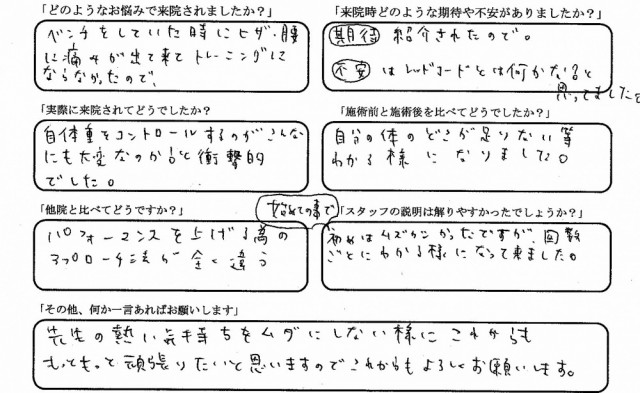 「どのようなお悩みで来院されましたか？」
ベンチをしていた時にヒザ・腰
に痛みが出て来てトレーニングに
ならなかったので、
「来院時どのような期待や不安がありましたか？」
期待 紹介されたので。
不安 はレッドコードとは何かな？と
思ってました
「実際に来院されてどうでしたか？
自体重をコントロールするのがこんな
にも大変なのか!!と衝撃的
でした。
「施術前と施術後を比べてどうでしたか？」
自分の体のどこが足りない等
わかる様になりました。
「他院と比べてどうですか？」
パフォーマンスを上げる為の
アプローチ法が全く違う
始めての事で
「スタッフの説明は解りやすかったでしょうか？」
初めはムズカシかったですが、回数
ごとにわかる様になって来ました。
「その他、何か一言あればお願いします」
先生の熱い気持ちをムダにしない様にこれからも
もっともっと頑張りたいと思いますのでこれからもよろしくお願いします。